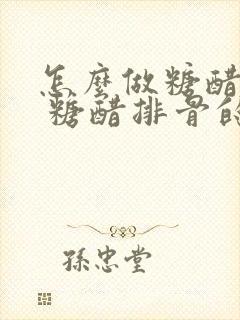 怎麼做糖醋
糖醋排骨的
孫忠堂